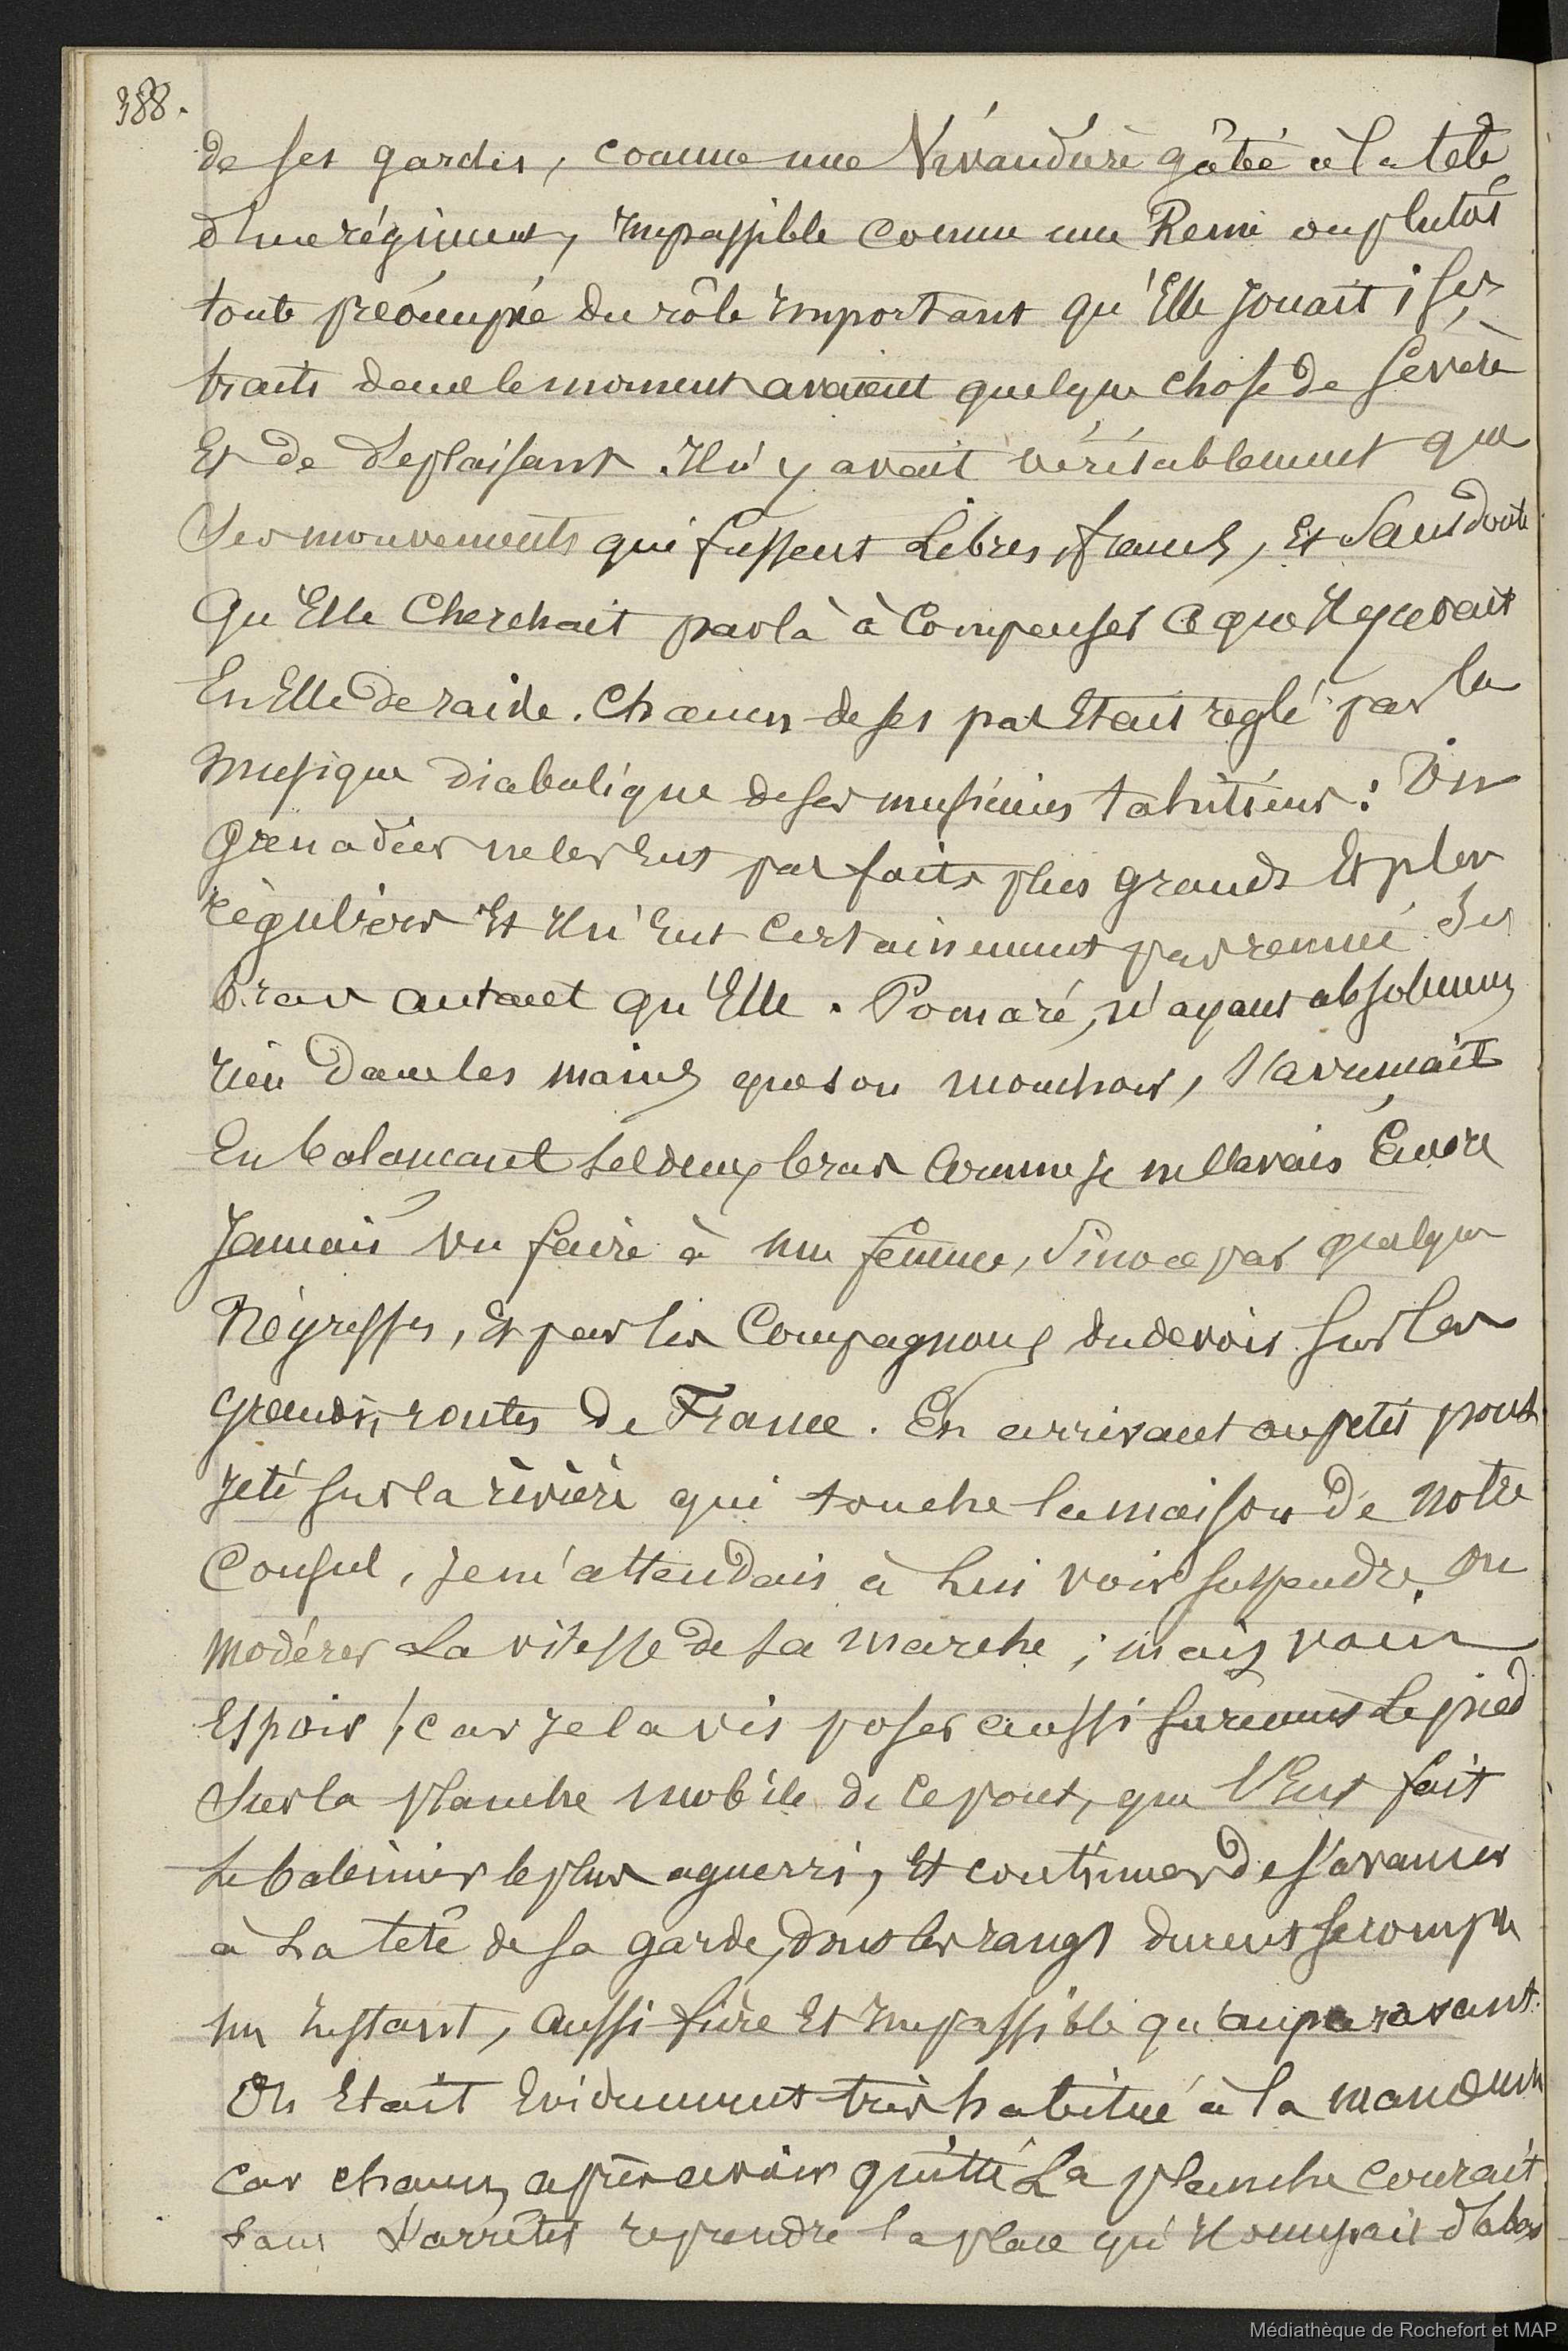 388.
de ses gardes, comme une Vivandière gâtée à la tete
d'une régiment, Impassible comme une Reine ou plutôt
toute préoccupée du rôle important qu'Elle jouait ; ses
traits dans le moment avaient quelque chose de sévère
Et de deplaisant. Il n'y avait véritablement que
Ses mouvements qui fussent Libres, francs, Et Sans doute
Qu'Elle Cherchait par là à Compenser ce que Il y avait
En Elle de raide. Chacun de ses pas Etait reglé par la
Musique diabolique de ses musiciens tahitiens : Un
Grenadier ne les Eut pas faits plus grands Et plus
réguliers Et Il n'Eut Certainement pas remué Ses
bras autant qu'Elle. Pomaré, n'ayant absolument
rien dans les mains que son mouchoir, s'avançait
En balancant ses deux bras Comme je ne l'avais Encore
Jamais vu faire à une femme, Sinon par quelques
Négresses, Et par les Compagnons du devoir sur les
grandes routes de France. En arrivant au petit pont
jeté sur la rivière qui touche la maison de notre
Consul, je m'attendais à Lui voir suspendre ou
modérer La vitesse de sa marche ; mais vain
Espoir ! car je la vis poser aussi surement Le pied
Sur la planche mobile de ce pont, que l'Eut fait
Le baleinier le plus aguerri, Et continuer de s'avancer
à La tête de sa garde, dont les rangs durent se rompre
un Instant, aussi fière Et Impassible qu'auparavant.
On Etait Evidemment très habitué à la manœuvre
car chacun, après avoir quitté La planche courait
sans s'arrêter reprendre la place qu'Il occupait d'abord
Médiathèque de Rochefort et MAP